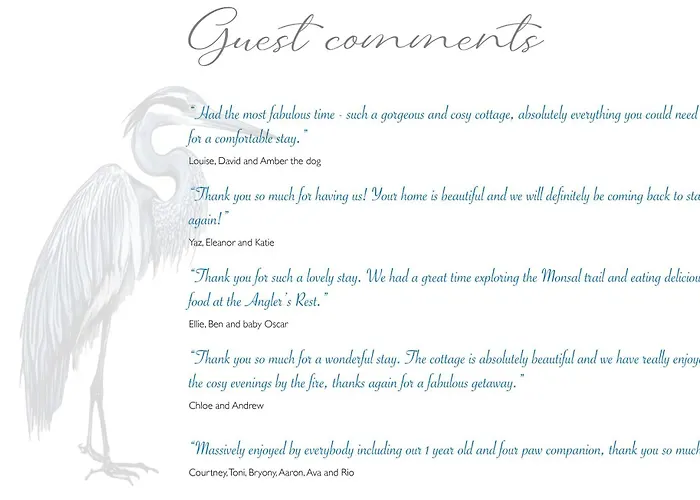 Guest comments
“Had the most fabulous time - such a gorgeous and cosy cottage, absolutely everything you could need
for a comfortable stay.”
Louise, David and Amber the dog
“Thank you so much for having us! Your home is beautiful and we will definitely be coming back to
again!”
Yaz, Eleanor and Katie
“Thank you for such a lovely stay. We had a great time exploring the Monsal trail and eating
food at the Angler's Rest.”
Ellie, Ben and baby Oscar
“Thank you so much for a wonderful stay. The cottage is absolutely beautiful and we have really
the cosy evenings by the fire, thanks again for a fabulous getaway.”
Chloe and Andrew
“Massively enjoyed by everybody including our 1 year old and four paw companion, thank you so much
Courtney, Toni, Bryony, Aaron, Ava and Rio